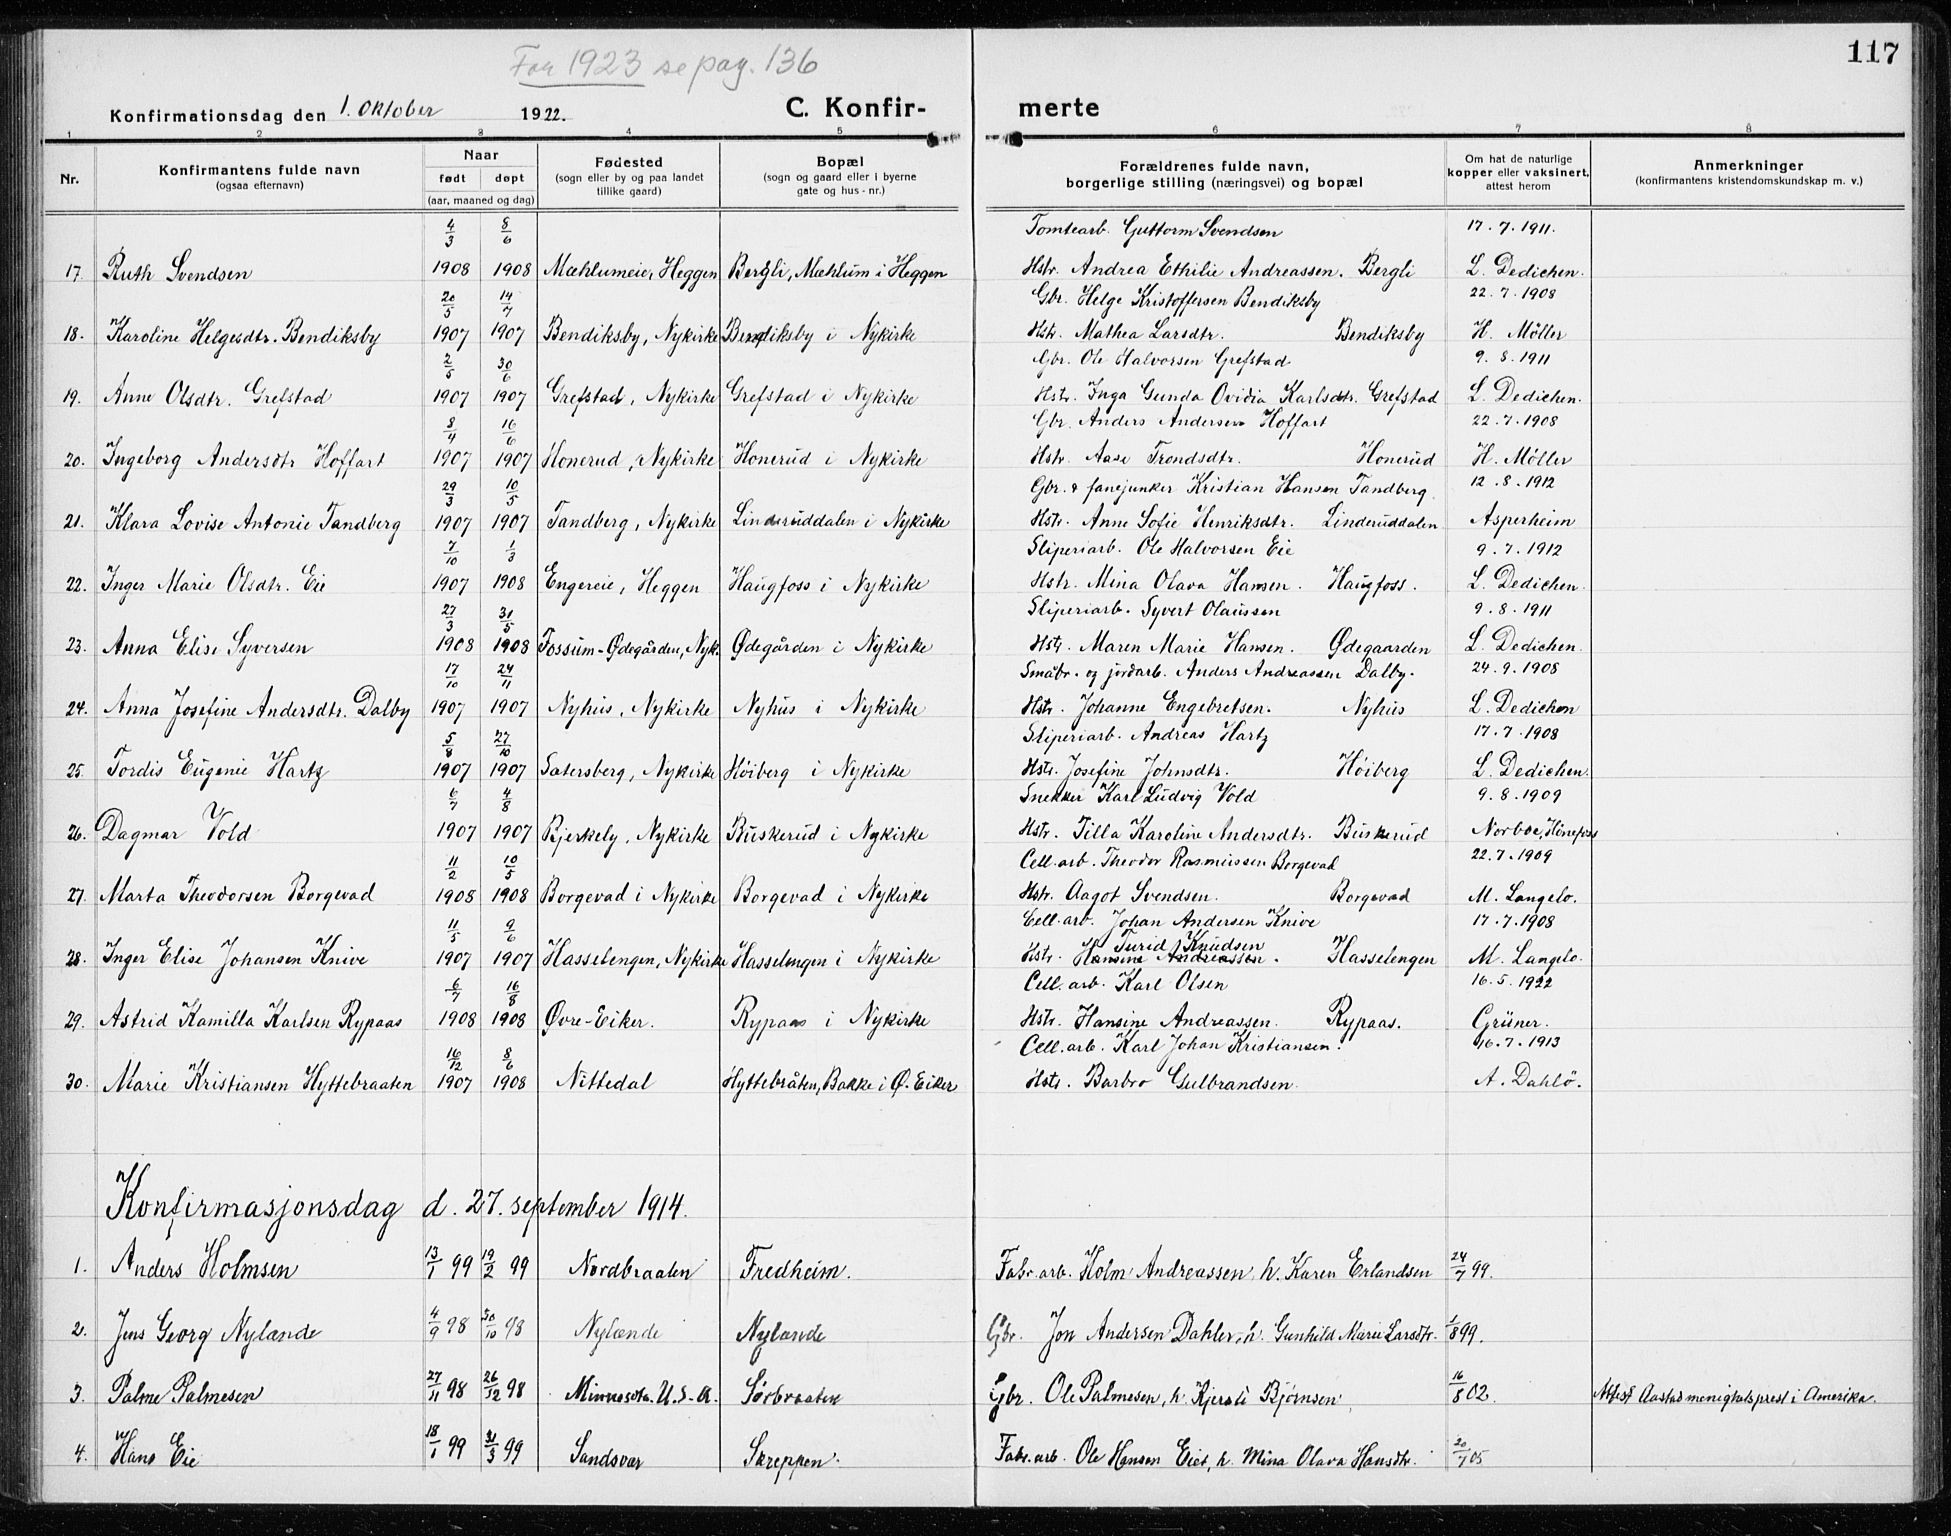 117
For 1923 se pag. 136
Konfirmationsdag den 1. Oktober 1922.
C. Konfir-
merte
1 2 3 4 5 6 7 8
Nr.
Konfirmantens fulde navn
(ogsaa efternavn)
Naar
født døpt
(aar, maaned og dag)
Fødested
(sogn eller by og paa landet
tillike gaard)
Bopæl
(sogn og gaard eller i byerne
gate og hus - nr.)
Forældrenes fulde navn,
borgerlige stilling (næringsvei) og bopæl
Om hat de naturlige
kopper eller vaksinert,
attest herom
Anmerkninger
(konfirmantens kristendomskundskap m. v.)
4/3 8/6 Tomtearb. Guttorm Svendsen 17.7.1911.
17. Ruth Svendsen 1908 1908 Mæhlumeie, Heggen Bergli, Mæhlum i Heggen Hstr. Andrea Ethilie Andreassen. Bergli L. Dedichen.
20/5 14/7 Gbr. Helge Kristoffersen Bendiksby 22.7.1908
18. Karoline Helgesdtr. Bendiksby 1907 1907 Bendiksby, Nykirke Bendiksby i Nykirke Hstr. Mathea Larsdtr. Bendiksby H. Möller
2/5 30/6 Gbr. Ole Halvorsen Grefstad 9.8.1911
19. Anne Olsdtr. Grefstad 1907 1907 Grefstad, Nykirke Grefstad i Nykirke Hstr. Inga Gunda Ovidia Karlsdtr. Grefstad L. Dedichen.
8/4 16/6 Gbr. Anders Andersen Hoffart 22.7.1908
20. Ingeborg Andersdtr Hoffart 1907 1907 Honerud, Nykirke Honerud i Nykirke Hstr. Aase Trondsdtr. Honerud H. Möller
29/3 10/5 Gbr. & fanejunker Kristian Hansen Tandberg. 12.8.1912
21. Klara Lovise Antonie Tandberg 1907 1907 Tandberg, Nykirke Linderuddalen i Nykirke Hstr. Anne Sofie Henriksdtr. Linderuddalen Asperheim
7/10 1/3 Sliperiarb. Ole Halvorsen Eie 9.7.1912
22. Inger Marie Olsdtr. Eie 1907 1908 Engereie, Heggen Haugfoss i Nykirke Hstr. Mina Olava Hansen. Haugfoss. L. Dedichen.
27/3 31/5 Sliperiarb. Syvert Olaussen 9.8.1911
23. Anna Elise Syversen 1908 1908 Fossum-Ødegården, Nyk. Ødegården i Nykirke Hstr. Maren Marie Hansen. Ødegaarden L. Dedichen.
17/10 24/11 Småbr. og jordarb. Anders Andreassen Dalby. 24.9.1908
24. Anna Josefine Andersdtr. Dalby 1907 1907 Nyhus, Nykirke Nyhus i Nykirke Hstr. Johanne Engebretsen. Nyhus L. Dedichen
5/8 27/10 Sliperiarb. Andreas Hartz 17.7.1908
25. Tordis Eugenie Hartz 1907 1907 Sætersberg, Nykirke Høiberg i Nykirke Hstr. Josefine Johnsdtr. Høiberg L. Dedichen.
6/7 4/8 Snekker Karl Ludvig Vold 9.8.1909
26. Dagmar Vold 1907 1907 Bjerkely, Nykirke Buskerud i Nykirke Hstr. Tilla Karoline Andersdtr. Buskerud Norboe, Hönefoss
11/2 10/5 Cell.arb. Theodor Rasmussen Borgevad 22.7.1909
27. Marta Theodorsen Borgevad 1908 1908 Borgevad i Nykirke Borgevad i Nykirke Hstr. Aagot Svendsen. Borgevad M. Langelo.
11/5 9/6 Cell.arb. Johan Andersen Knive 17.7.1908
Turid Knudsen
28. Inger Elise Johansen Knive 1907 1907 Hasselengen, Nykirke Hasselengen i Nykirke Hstr. Hansine Andreassen. Hasselengen M. Langelo.
6/7 16/8 Cell.arb. Karl Olsen 16.5.1922
29. Astrid Kamilla Karlsen Rypaas 1908 1908 Øvre-Eiker. Rypaas i Nykirke Hstr. Hansine Andreassen. Rypaas. Grüner.
16/12 8/6 Cell.arb. Karl Johan Kristiansen. 16.7.1913
30. Marie Kristiansen Hyttebraaten 1907 1908 Nittedal Hyttebråten, Bakke i Ø. Eiker Hstr. Barbro Gulbrandsen. A. Dahlö.
Konfirmasjonsdag d. 27. september 1914.
1. Anders Holmsen 13/1 99 19/2 99 Nordbraaten Fredheim. Fabr.arb. Holm Andreassen, h. Karen Erlandsen 24/7 99.
2. Jens Georg Nylænde 4/9 98 30/10 98 Nylænde Nylænde Gbr. Jon Andersen Dahler, h. Gunhild Marie Larsdtr. 1/8 99.
3. Palme Palmesen 27/11 98 26/12 98 Minnesota. U.S.A. Sørbraaten Gbr. Ole Palmesen, h. Kjersti Bjørnsen 16/8 02. Attest Aastad menighetsprest i Amerika.
4. Hans Eie 18/1 99 31/3 99 Sandsvær Skreppen. Fabr.arb. Ole Hansen Eiet, h. Mina Olava Hansdtr. 20/7 05